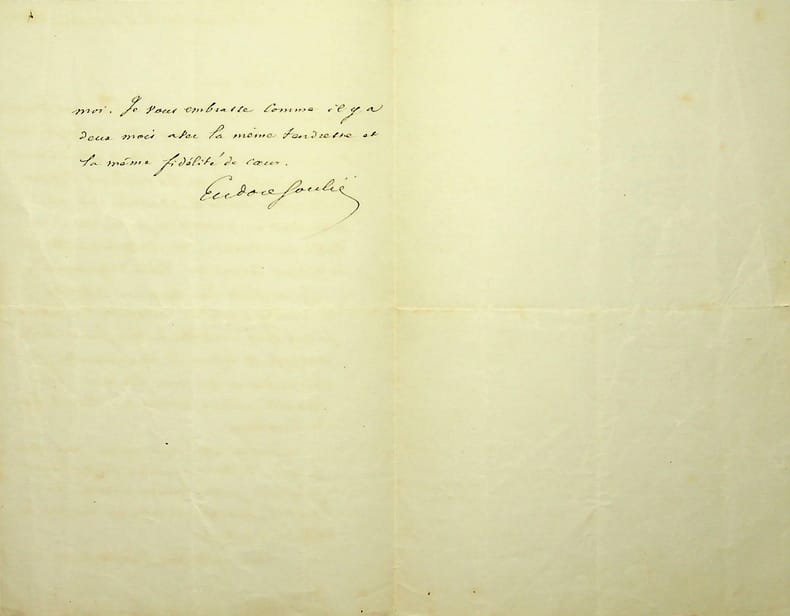 moi. Je vous embrasse comme il y a
deux mois avec la même tendresse et
la même fidélité de cœur.
Eudore Soulié